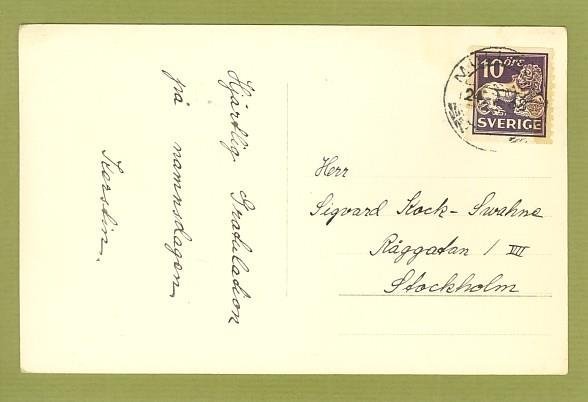 Hjärtlig Gratulation
på namnsdagen
Kerstin.
10 ÖRE
SVERIGE
24
Herr
Sigvard Kock-Swahne
Råggatan 1 III
Stockholm